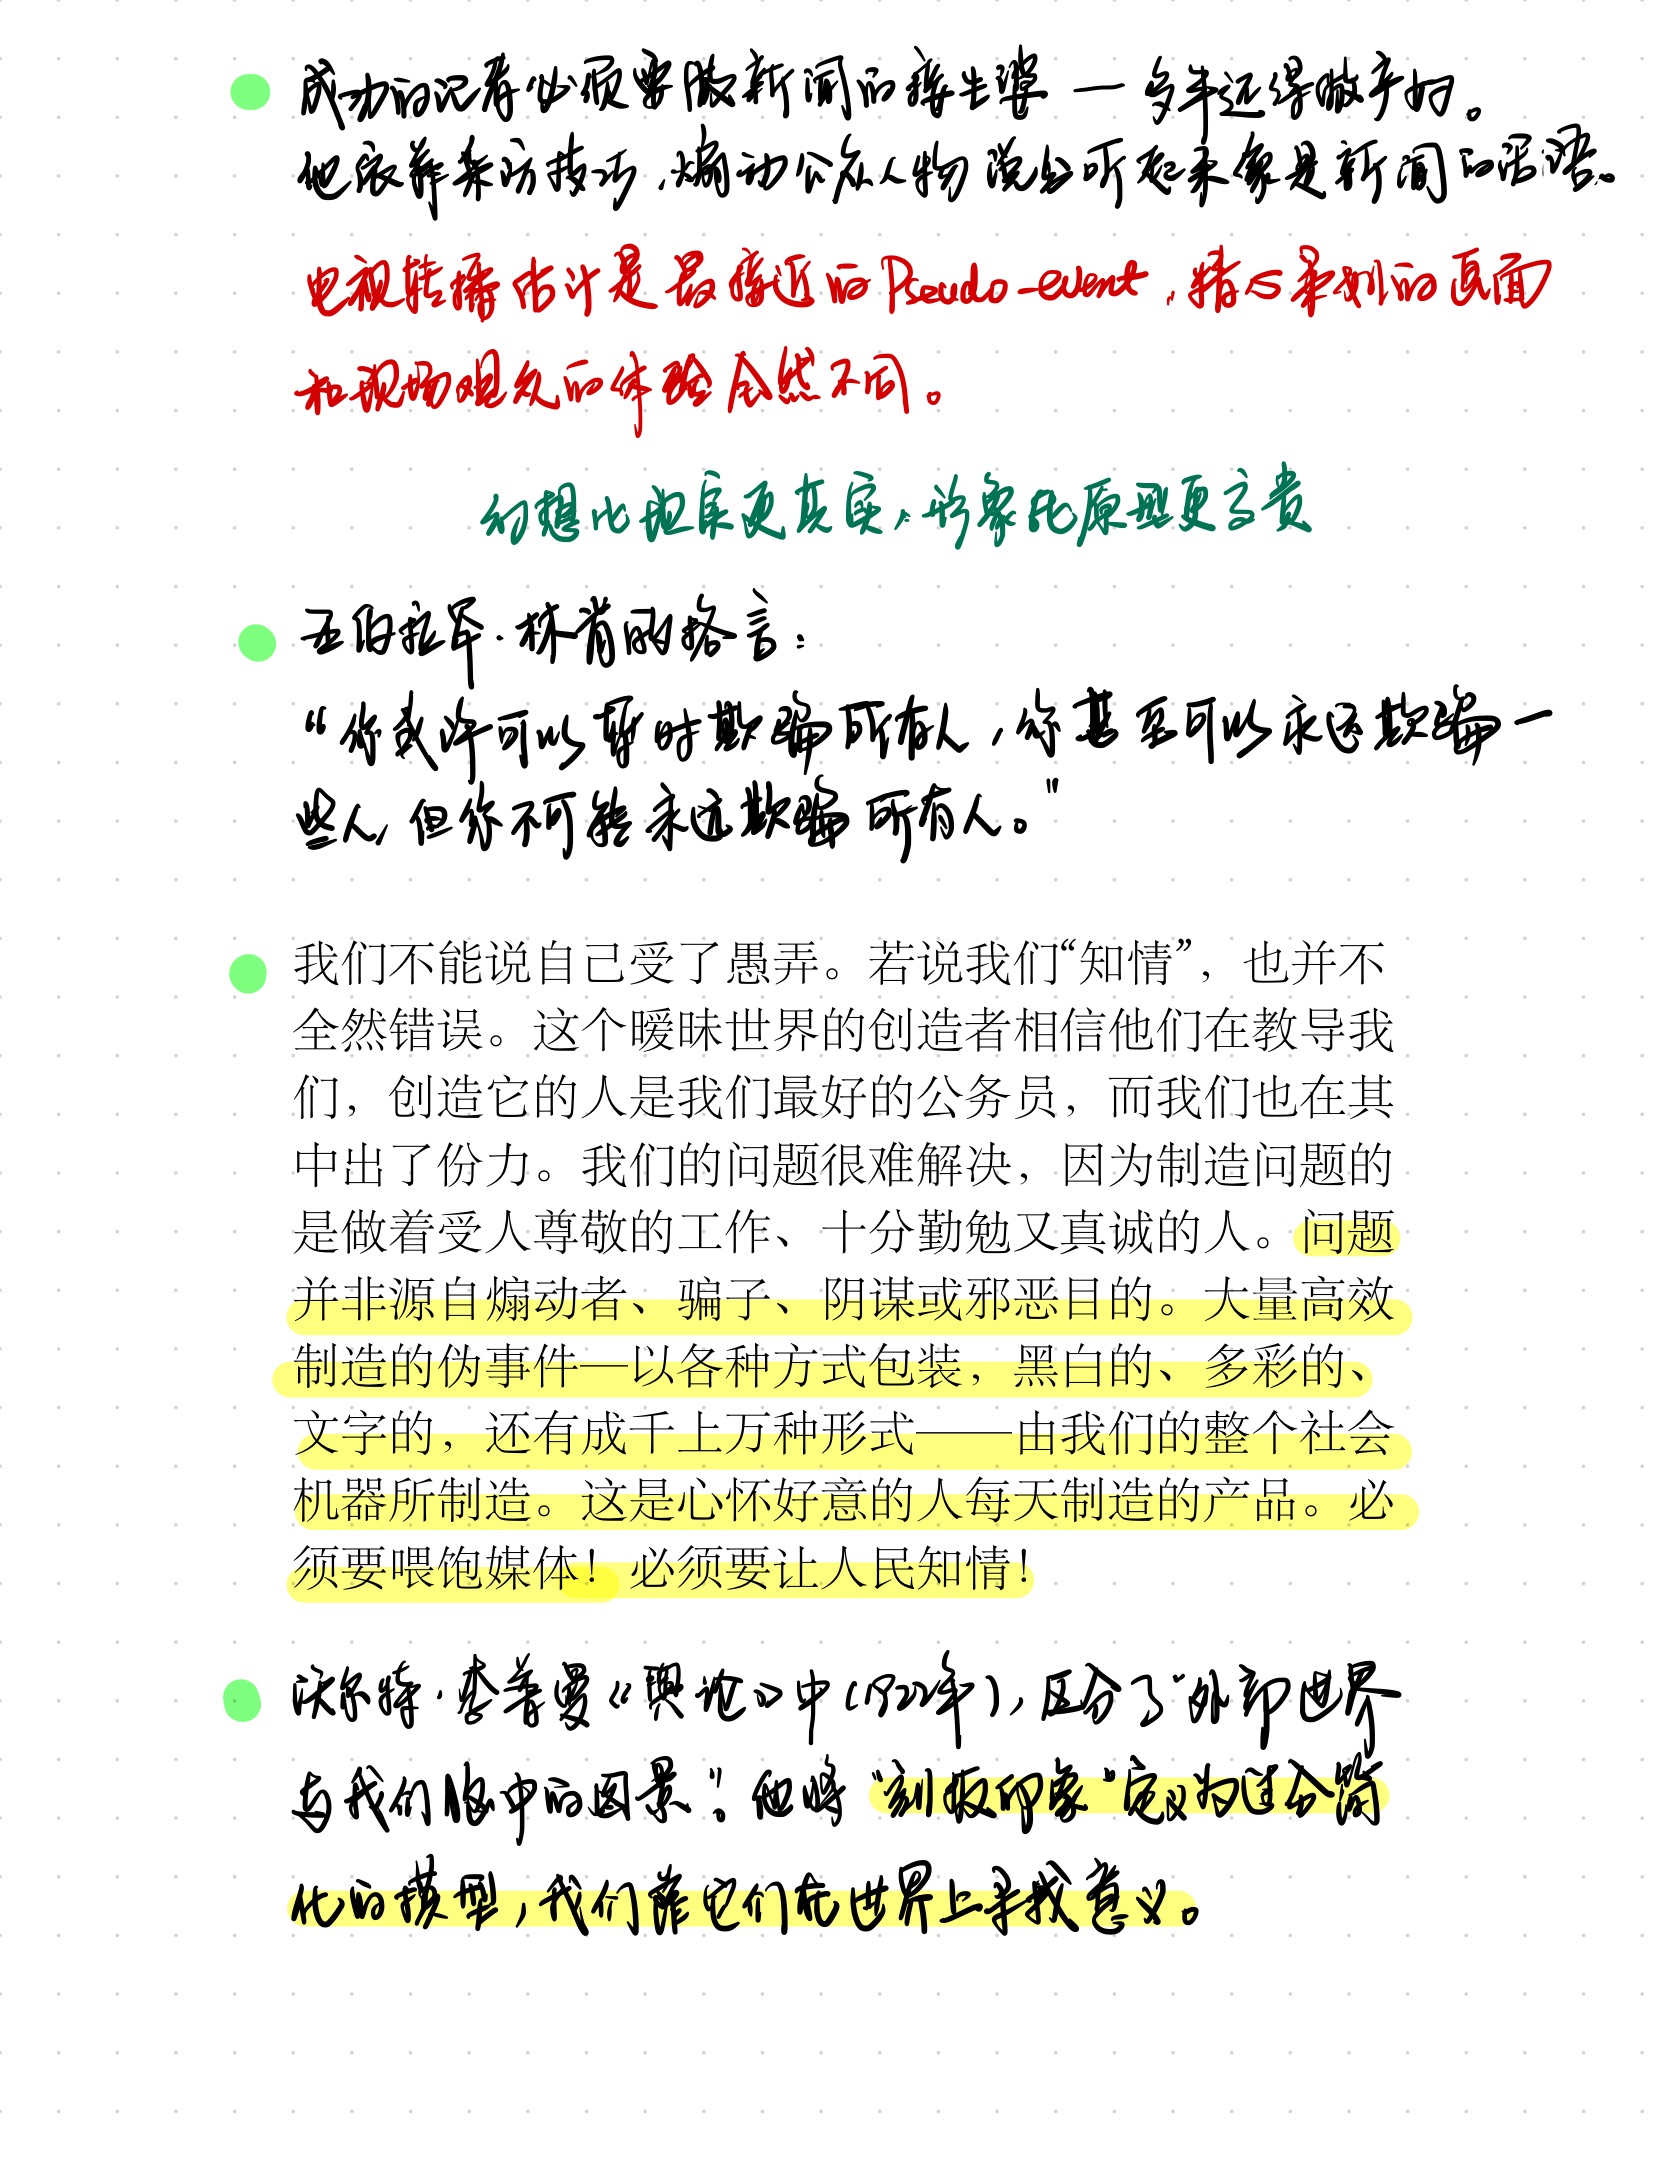 成功的记者必须要做新闻的接生婆一多半还得做产妇。
他依靠采访技巧，煽动公众人物说出听起来像是新闻的话语。
电视转播估计是最接近的Pseudo-event，精心策划的画面
和现场观众的体验全然不同。
幻想比现实更真实，形象比原型更高贵
亚伯拉罕·林肯的格言：
“你或许可以暂时欺骗所有人，你甚至可以永远欺骗一
些人，但你不可能永远欺骗所有人。”
我们不能说自己受了愚弄。若说我们“知情”，也并不
全然错误。这个暧昧世界的创造者相信他们在教导我
们，创造它的人是我们最好的公务员，而我们也在其
中出了份力。我们的问题很难解决，因为制造问题的
是做着受人尊敬的工作、十分勤勉又真诚的人。问题
并非源自煽动者、骗子、阴谋或邪恶目的。大量高效
制造的伪事件—以各种方式包装，黑白的、多彩的、
文字的，还有成千上万种形式——由我们的整个社会
机器所制造。这是心怀好意的人每天制造的产品。必
须要喂饱媒体！必须要让人民知情！
沃尔特·李普曼《舆论》中（1922年），区分了“外部世界
与我们脑中的图景”。他将“刻板印象”定义为过分简
化的模型，我们靠它们在世界上寻找意义。